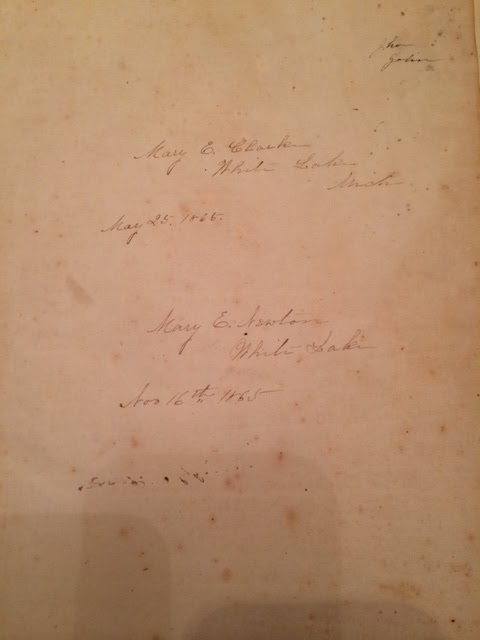 John
Mary E. Clark
White Lake
Mich
May 25. 1865.
Mary E. Newton
White Lake
Nov 16th 1865